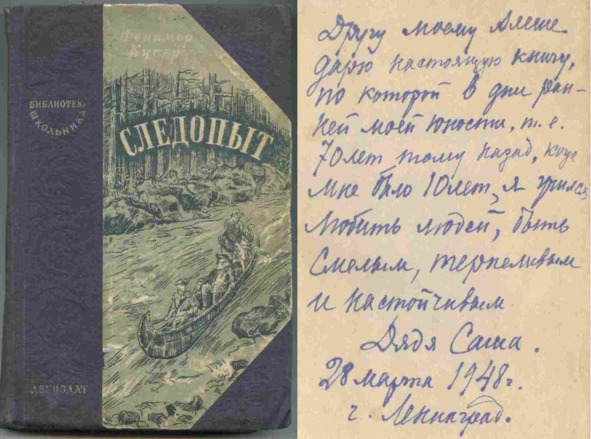 Фенимор
Купер
БИБЛИОТЕКА
ШКОЛЬНИКА
СЛЕДОПЫТ
ЛЕНИЗДАТ
Другу моему Алеше
дарю настоящую книгу,
по которой в дни ран-
ней моей юности, т.е.
70 лет тому назад, когда
мне было 10 лет, я учился
любить людей, быть
смелым, терпеливым
и настойчивым.
Дядя Саша.
28 марта 1948 г.
г. Ленинград.